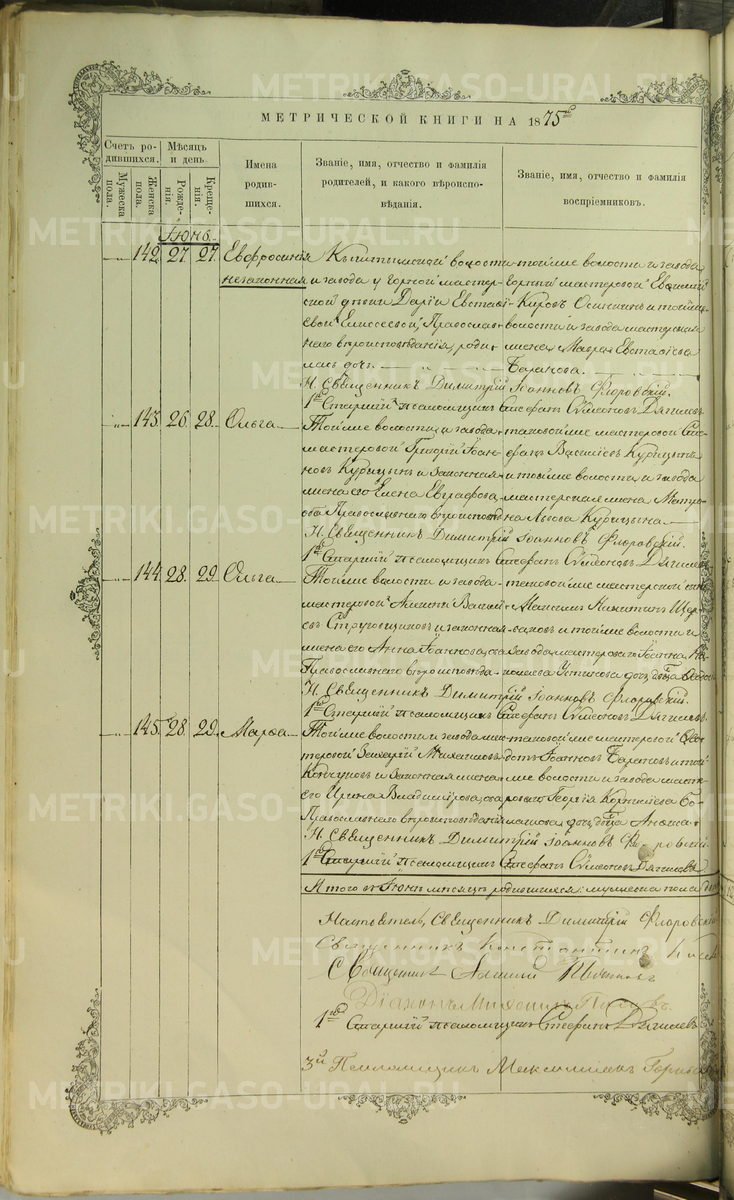 МЕТРИЧЕСКОЙ КНИГИ НА 1875й
Счетъ родившихся.
Мѣсяцъ и день.
Имена родившихся.
Званіе, имя, отчество и фамилія родителей, и какого вѣроисповѣданія.
Званіе, имя, отчество и фамилія воспріемниковъ.
Мужеска пола.
Женска пола.
Рожденія.
Крещенія.
Іюнь.
142 27. 27. Евфросинія
незаконная
Кыштымской волости
и завода у горной мастер-
ской дочки Даріи Евстаѳі-
евой Елисеевой, Православ-
наго вѣроисповѣданія, роди-
лась дочь
той же волости и завода
Горный мастеровой
Осининъ и той же
волости и завода мастерская
жена Мавра Евстаѳіева
Баранова.
Н. Священникъ Димитрій Іоанновъ Флоровскій.
1й Старшій псаломщикъ Стефанъ Сѵмеоновъ Дягилевъ
143. 26. 28. Ольга
Той же волости и завода
мастеровой Григорій Іоан-
новъ Курицынъ и законная
жена его Елена Евграфова,
оба Православнаго вѣроисповѣд
таковой же мастеровой Сте-
фанъ Василіевъ Курицынъ
и той же волости и завода
мастерская жена Матро-
на Львова Курицына
Н. Священникъ Димитрій Іоанновъ Флоровскій.
1й Старшій псаломщикъ Стефанъ Сѵмеоновъ Дягилевъ
144. 28. 29. Ольга
Той же волости и завода
мастеровой
и законная
жена его Анна Іоаннова, оба
Православнаго вѣроисповѣда-
таковой же мастерской сынъ
Максимъ Никитинъ
и той же волости и
завода мастероваго Іоанна
Устинова дочь дѣвица
Н. Священникъ Димитрій Іоанновъ Флоровскій.
1й Старшій псаломщикъ Стефанъ Сѵмеоновъ Дягилевъ.
145. 28. 29. Марѳа
Той же волости и завода мас-
теровой Захарій Михаиловъ
и Законная жена
его Ирина Владимірова, оба
Православнаго вѣроисповѣданія
таковой же мастеровой Ѳео-
дотъ Іоанновъ Барановъ и той
же волости и завода масте-
роваго Георгія Корнилева
дочь, дѣвица
Н. Священникъ Димитрій Іоанновъ Флоровскій.
1й Старшій псаломщикъ Стефанъ Сѵмеоновъ Дягилевъ
Итого въ Іюнѣ мѣсяцѣ родившихся: мужеска пола
Настоятель, Священникъ Димитрій Флоровскій
Священникъ Константинъ
Священникъ Алексій
Діаконъ
1й Старшій псаломщикъ Стефанъ Дягилевъ
3й Псаломщикъ
METRIKI.GASO-URAL.RU